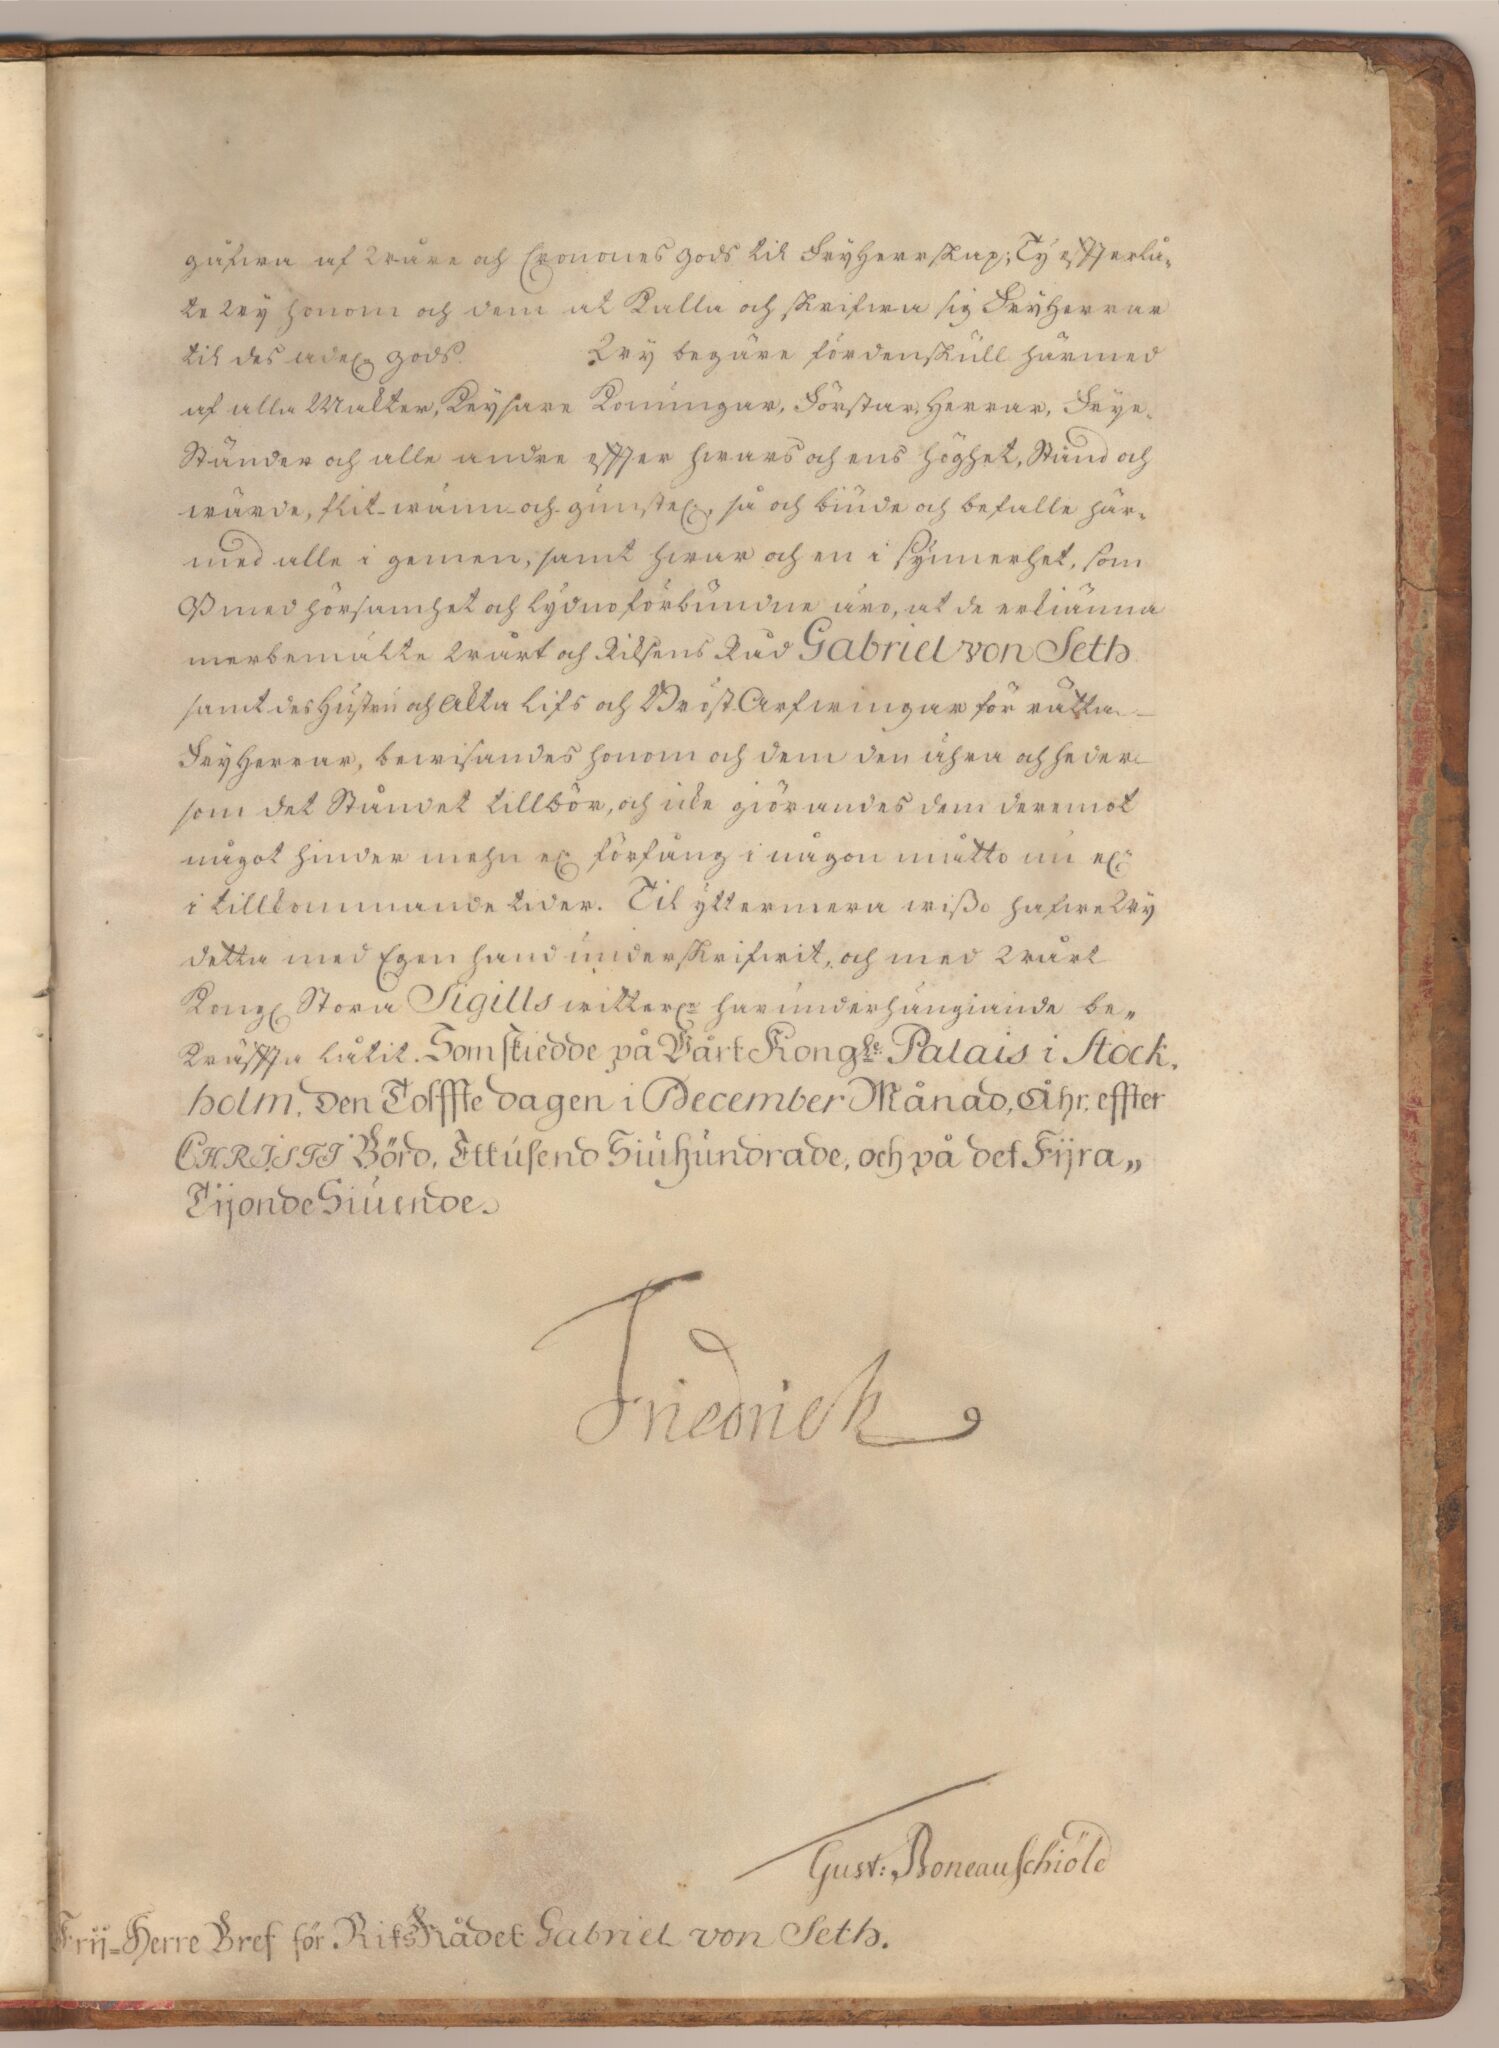 gåfwa af Wåre och Cronones gods til FryHerrskap; Ty effterlå-
te Wy honom och dem at Kalla och skrifwa sig FryHerrar
til des adel. gods. Wy begäre fördenskull härmed
af alla Makter, Keysare Konungar, Förstar, Herrar, Frye-
Ständer och alle andre effter hwars och ens höghet, Stånd och
wärde, flit- wänn- och gunstel., så och biude och befalle här-
med alle i gemen, samt hwar och en i synnerhet, som
Oß med hörsamhet och lydno förbundne äro, at de erkiänna
merbemälte Wårt och Riksens Råd Gabriel von Seth
samt des Hustru och Äkta Lifs och Bröst Arfwingar för rätta
FryHerrar, bewisandes honom och dem den ähra och heder
som det Ståndet tillbör, och icke giörandes dem deremot
något hinder mehn el. förfång i någon måtto nu el.
i tillkommande tider. Til yttermera wißo hafwe Wy
detta med Egen hand underskrifwit, och med Wårt
Kongl Stora Sigills witterln härunderhängiande be-
kräffta låtit. Som skiedde på Vårt Kongle. Palais i Stock-
holm, Den Tolffte dagen i December Månad, Åhr, effter
CHRISTI Börd, Ettusend Siuhundrade, och på det Fijra-
Tijonde Siuende.
Friedrich
Gust: Boneauschiöld
Frij-Herre Bref för RiksRådet Gabriel von Seth.